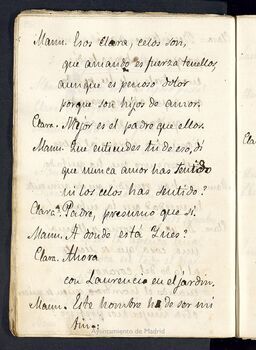 Manu. Esos Clara, celos son,
que amando es fuerza tenellos,
aunque es penoso dolor
porque son hijos de amor.
Clara. Mejor es el padre que ellos.
Manu. Que entiendes tú de eso, di
que nunca amor has tenido
ni los celos has sentido?
Clara. Padre, presumo que sí.
Manu. A donde está Inés?
Clara. Ahora
con Laurencia en el jardín.
Manu. Este hombre ha de ser mi
fin;
Ayuntamiento de Madrid